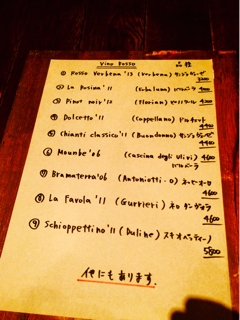 Vino Rosso 品種
① Rosso Verbena '13 (Verbena) サンジョヴェーゼ
3200
② La Bosina '11 (Subaluna) バルベーラ 4000
③ Pinot noir '12 (Florian) ピノノワール 4200
④ Dolcetto '11 (Cappellano) ドルチェット
4400
⑤ Chianti classico '11 (Buondonno) サンジョヴェーゼ
4400
⑥ Mounbe '06 (Cascina degli Ulivi) 4600
バルベーラ
⑦ Bramaterra '06 (Antoniotti・O) ネッビオーロ
4600
⑧ La Favola '11 (Gurrieri) ネロ ダーヴォラ
4600
⑨ Schioppettino '11 (Duline) スキオペッティーノ
5800
他にもあります.